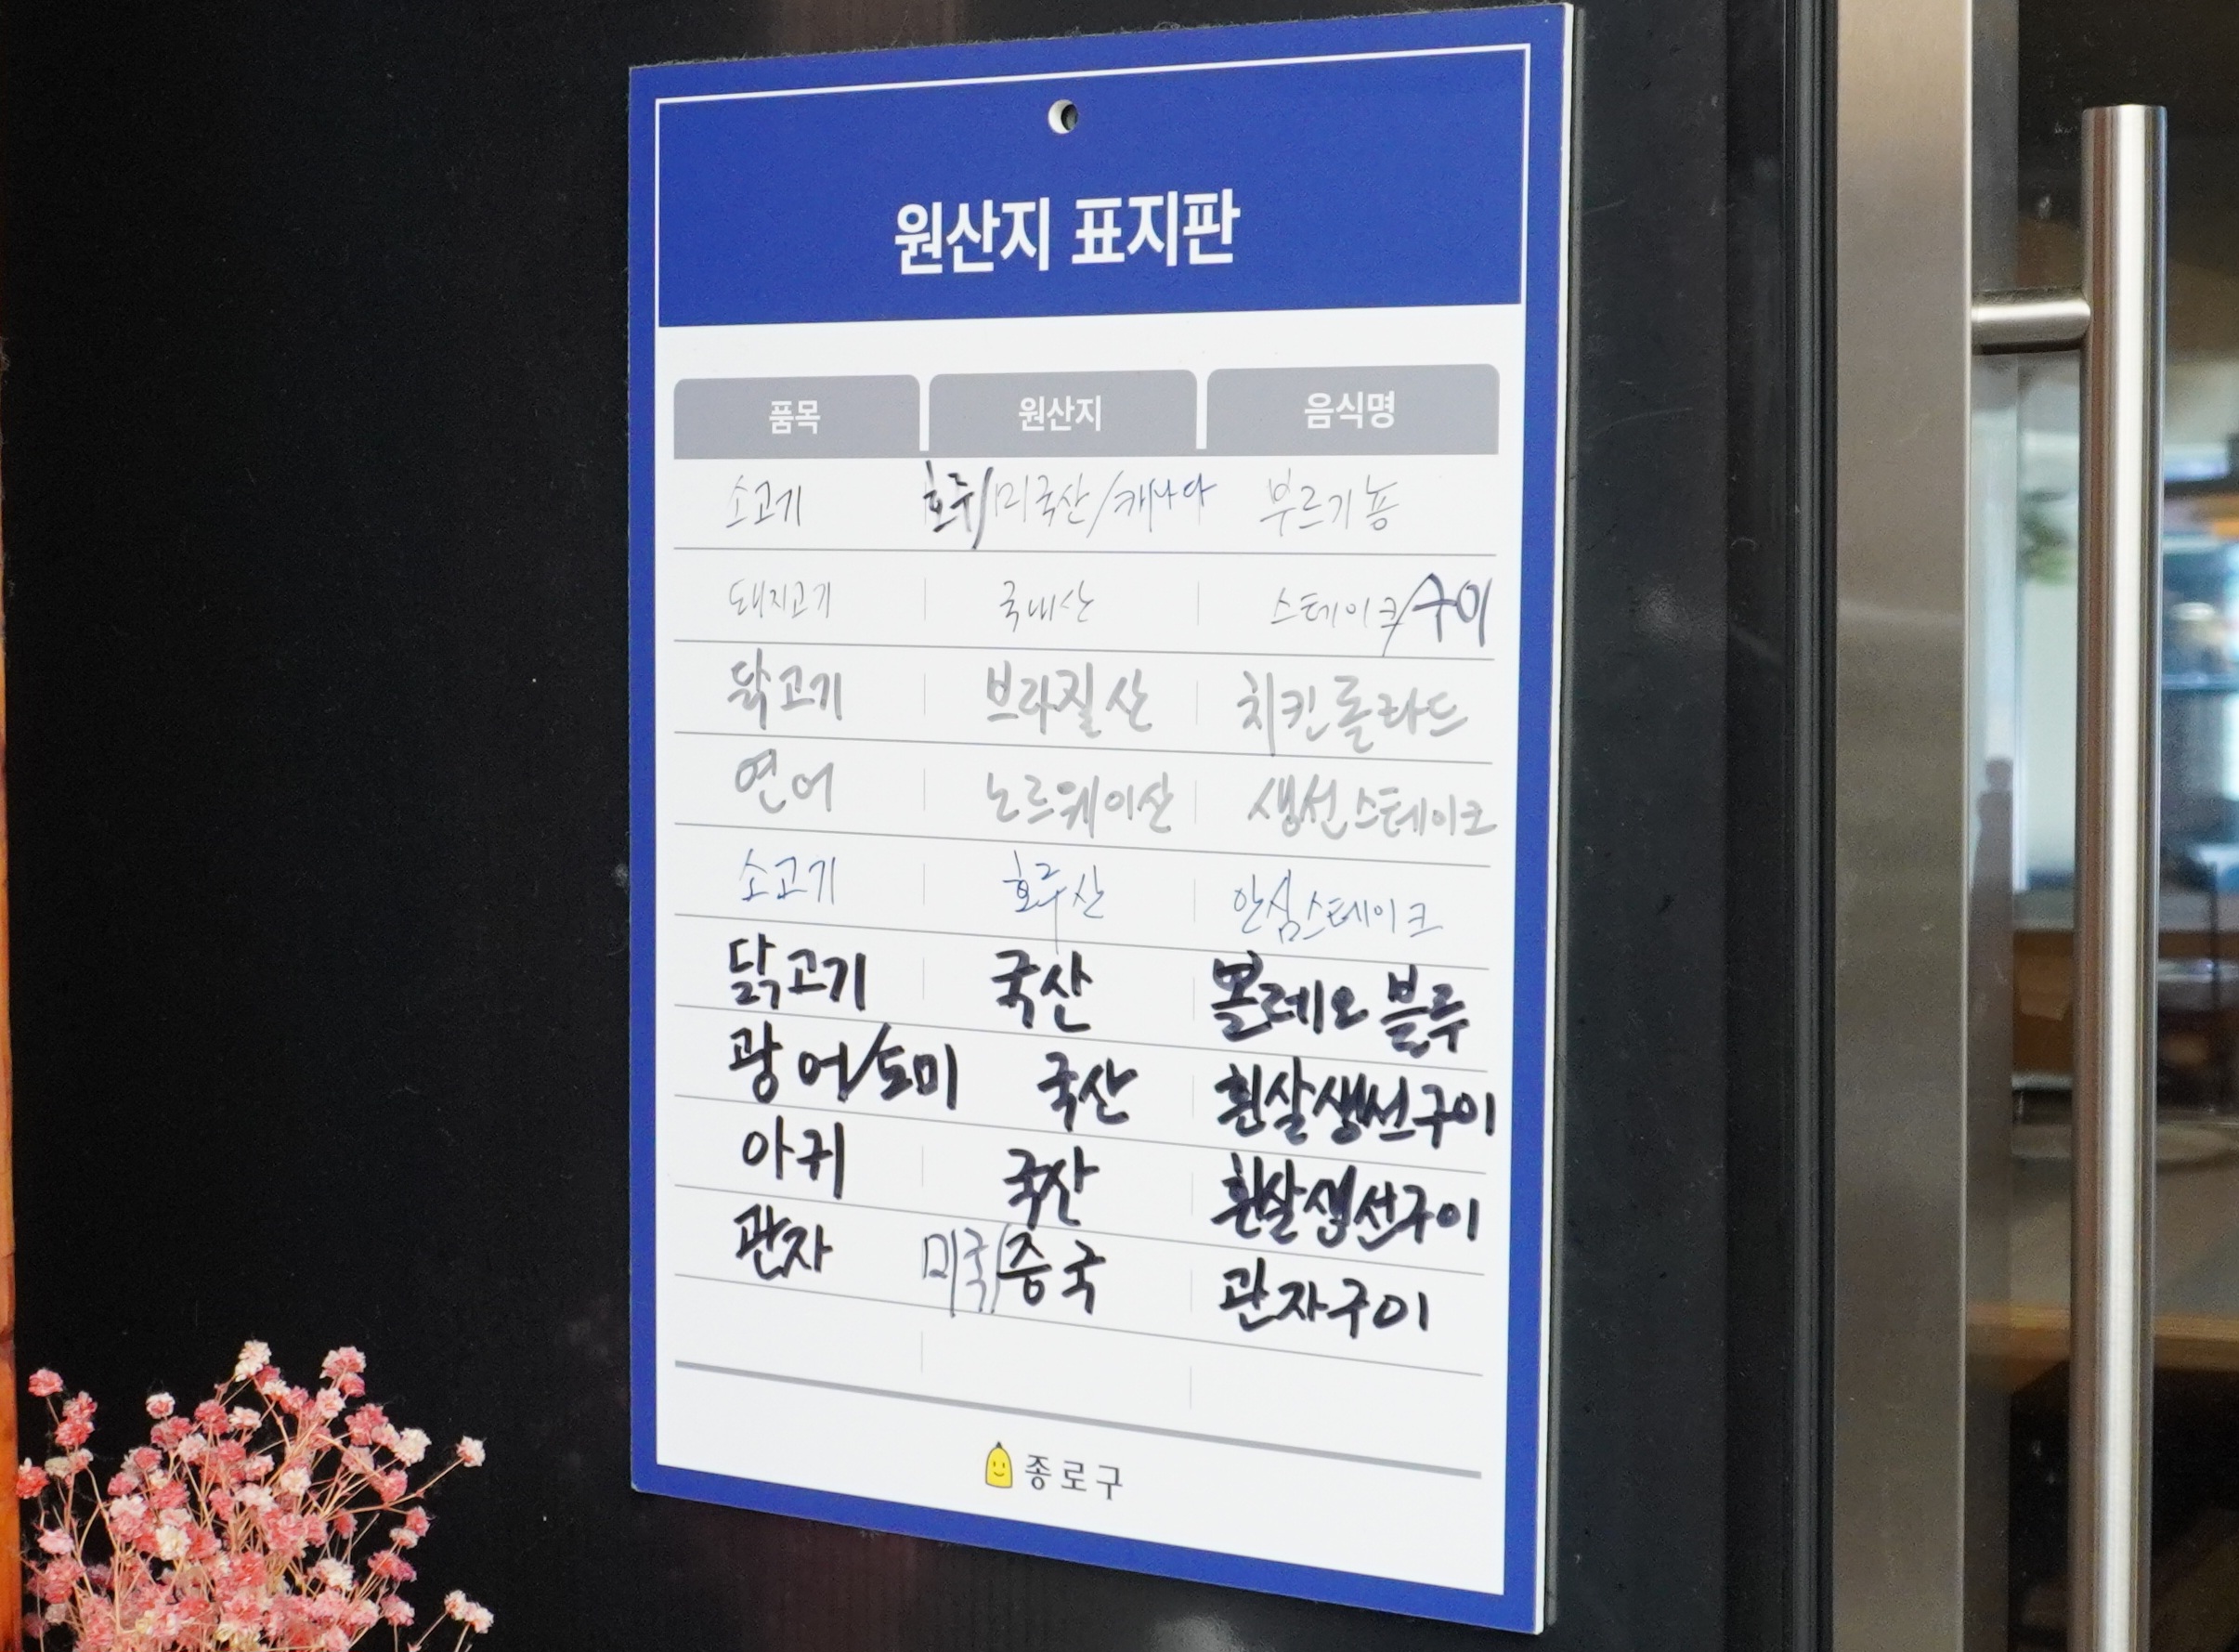 원산지 표지판
품목 원산지 음식명
소고기 호주/미국산/캐나다 부르기뇽
돼지고기 국내산 스테이크/구이
닭고기 브라질산 치킨롤라드
연어 노르웨이산 생선스테이크
소고기 호주산 안심스테이크
닭고기 국산 꼴레오 블루
광어/도미 국산 흰살생선구이
아귀 국산 흰살생선구이
관자 미국/중국 관자구이
종로구